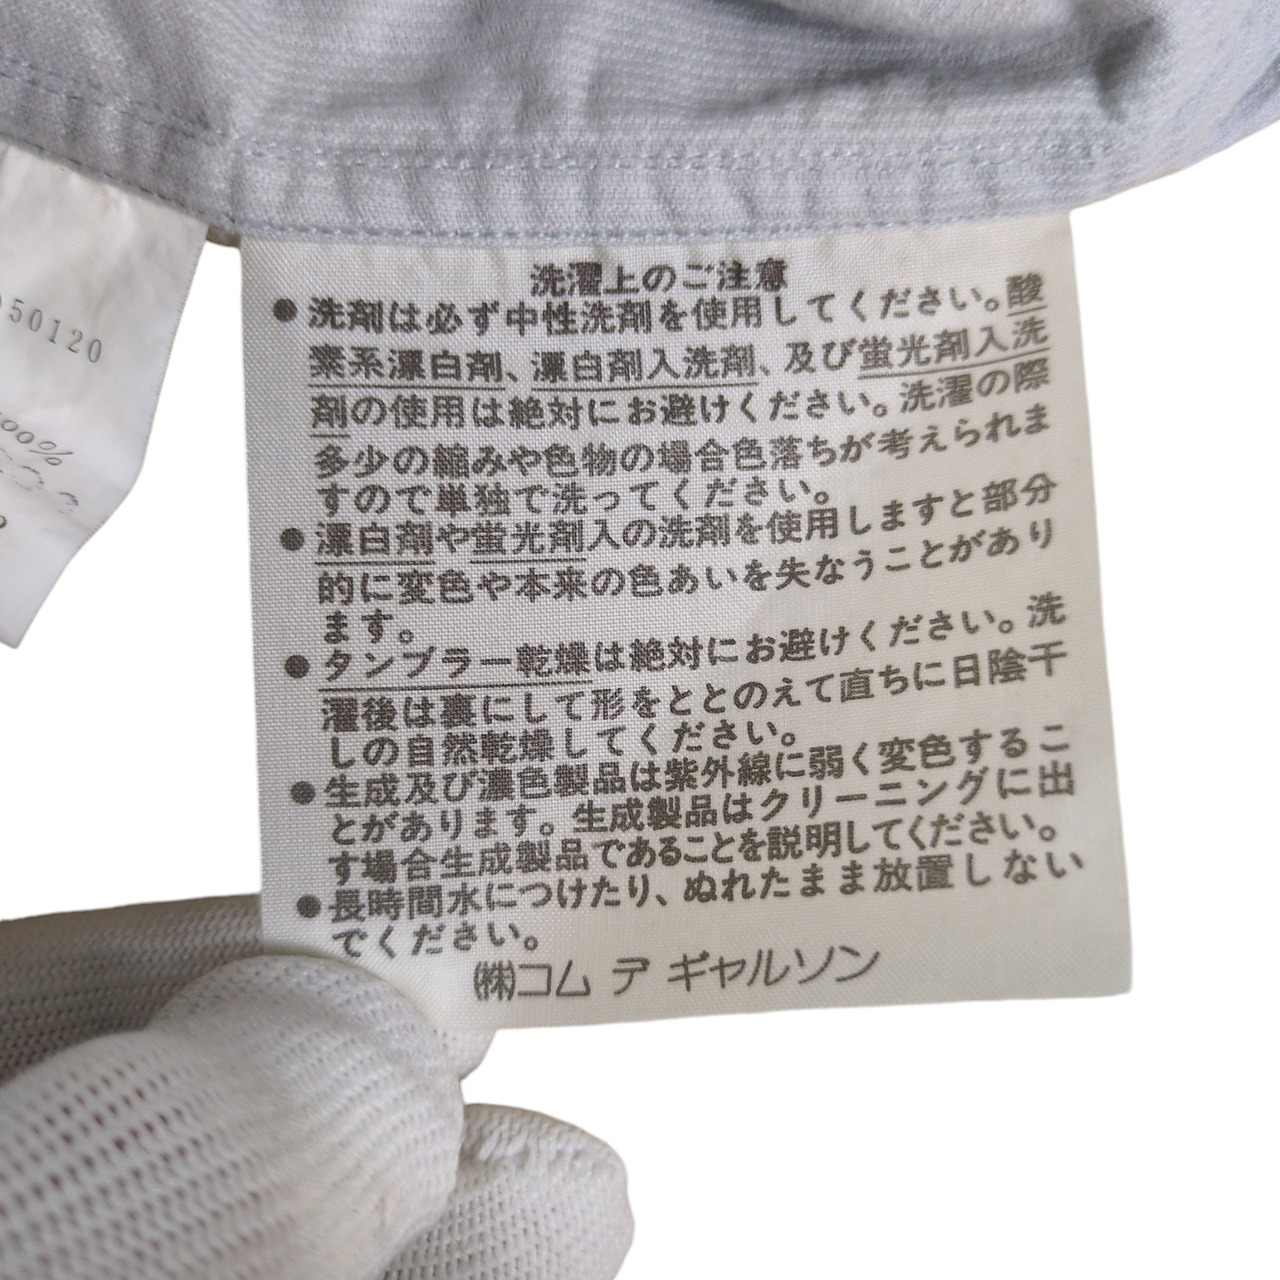 50120
100%
洗濯上のご注意
●洗剤は必ず中性洗剤を使用してください。酸
素系漂白剤、漂白剤入洗剤、及び蛍光剤入洗
剤の使用は絶対にお避けください。洗濯の際
多少の縮みや色物の場合色落ちが考えられま
すので単独で洗ってください。
●漂白剤や蛍光剤入の洗剤を使用しますと部分
的に変色や本来の色あいを失なうことがあり
ます。
●タンブラー乾燥は絶対にお避けください。洗
濯後は裏にして形をととのえて直ちに日陰干
しの自然乾燥してください。
●生成及び濃色製品は紫外線に弱く変色するこ
とがあります。生成製品はクリーニングに出
す場合生成製品であることを説明してください。
●長時間水につけたり、ぬれたまま放置しない
でください。
㈱コム デ ギャルソン